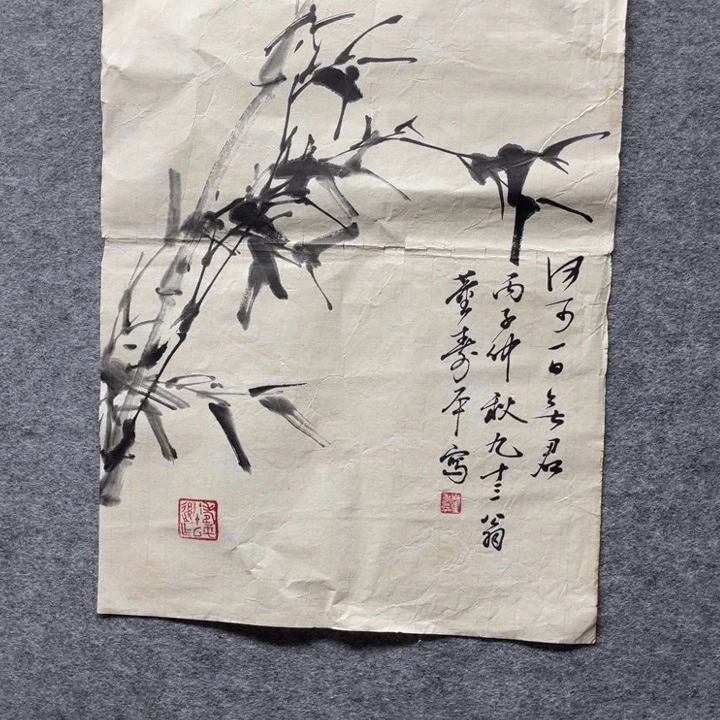 何可一日無君
丙子仲秋九十三翁
董壽平寫